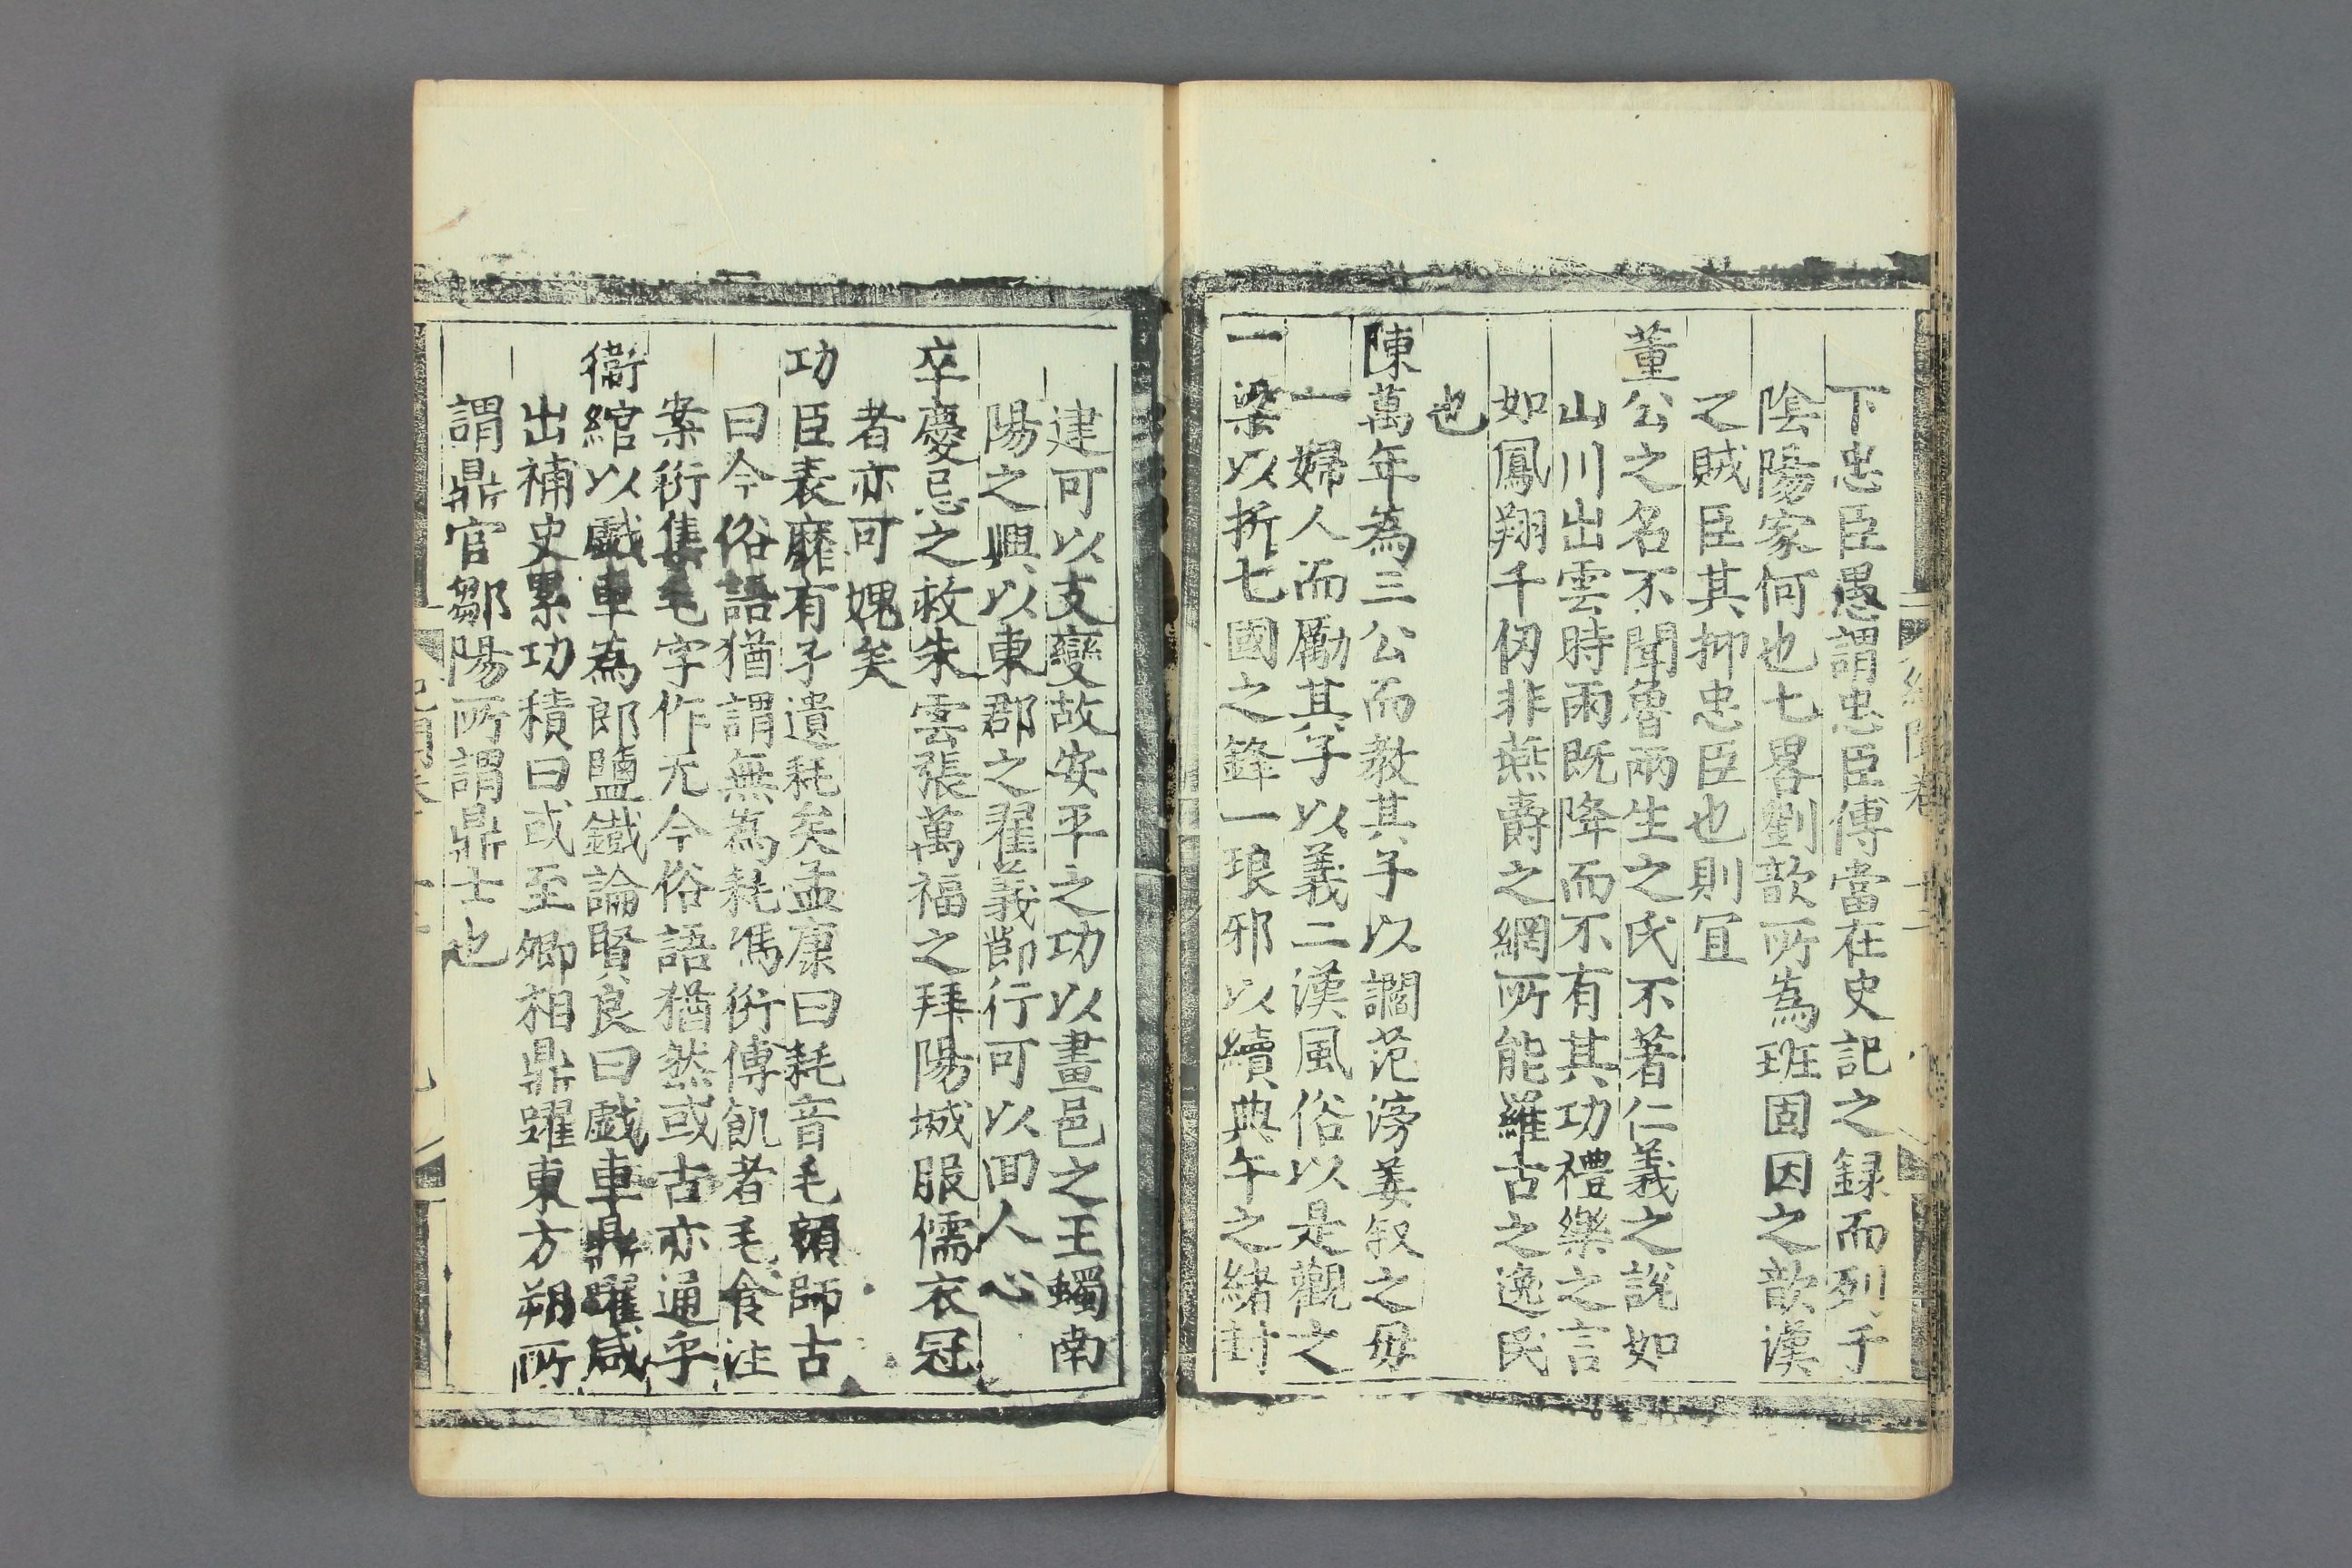 下忠臣愚謂忠臣傳當在史記之録而列于
陰陽家何也七畧劉歆所為班固因之歆漢
之賊臣其抑忠臣也則冝
董公之名不聞魯兩生之氏不著仁義之說如
山川出雲時雨既降而不有其功禮樂之言
如鳳翔千仞非燕爵之網所能羅古之逸民
也
陳萬年為三公而教其子以讇范滂姜叙之母
一婦人而勵其子以義二漢風俗以是觀之
一梁以折七國之鋒一琅邪以續典午之緒封
建可以支變故安平之功以畫邑之王蠋南
陽之興以東郡之翟義節行可以回人心
卒慶忌之救朱雲張萬福之拜陽城服儒衣冠
者亦可媿矣
功臣表靡有孑遺耗矣孟康曰耗音毛顔師古
曰今俗語猶謂無為耗馮衍傳飢者毛食注
案衍集毛字作无今俗語猶然或古亦通乎
衞綰以戲車為郎鹽鐵論賢良曰戲車鼎躍咸
出補吏累功積日或至卿相鼎躍東方朔所
謂鼎官鄒陽所謂鼎士也